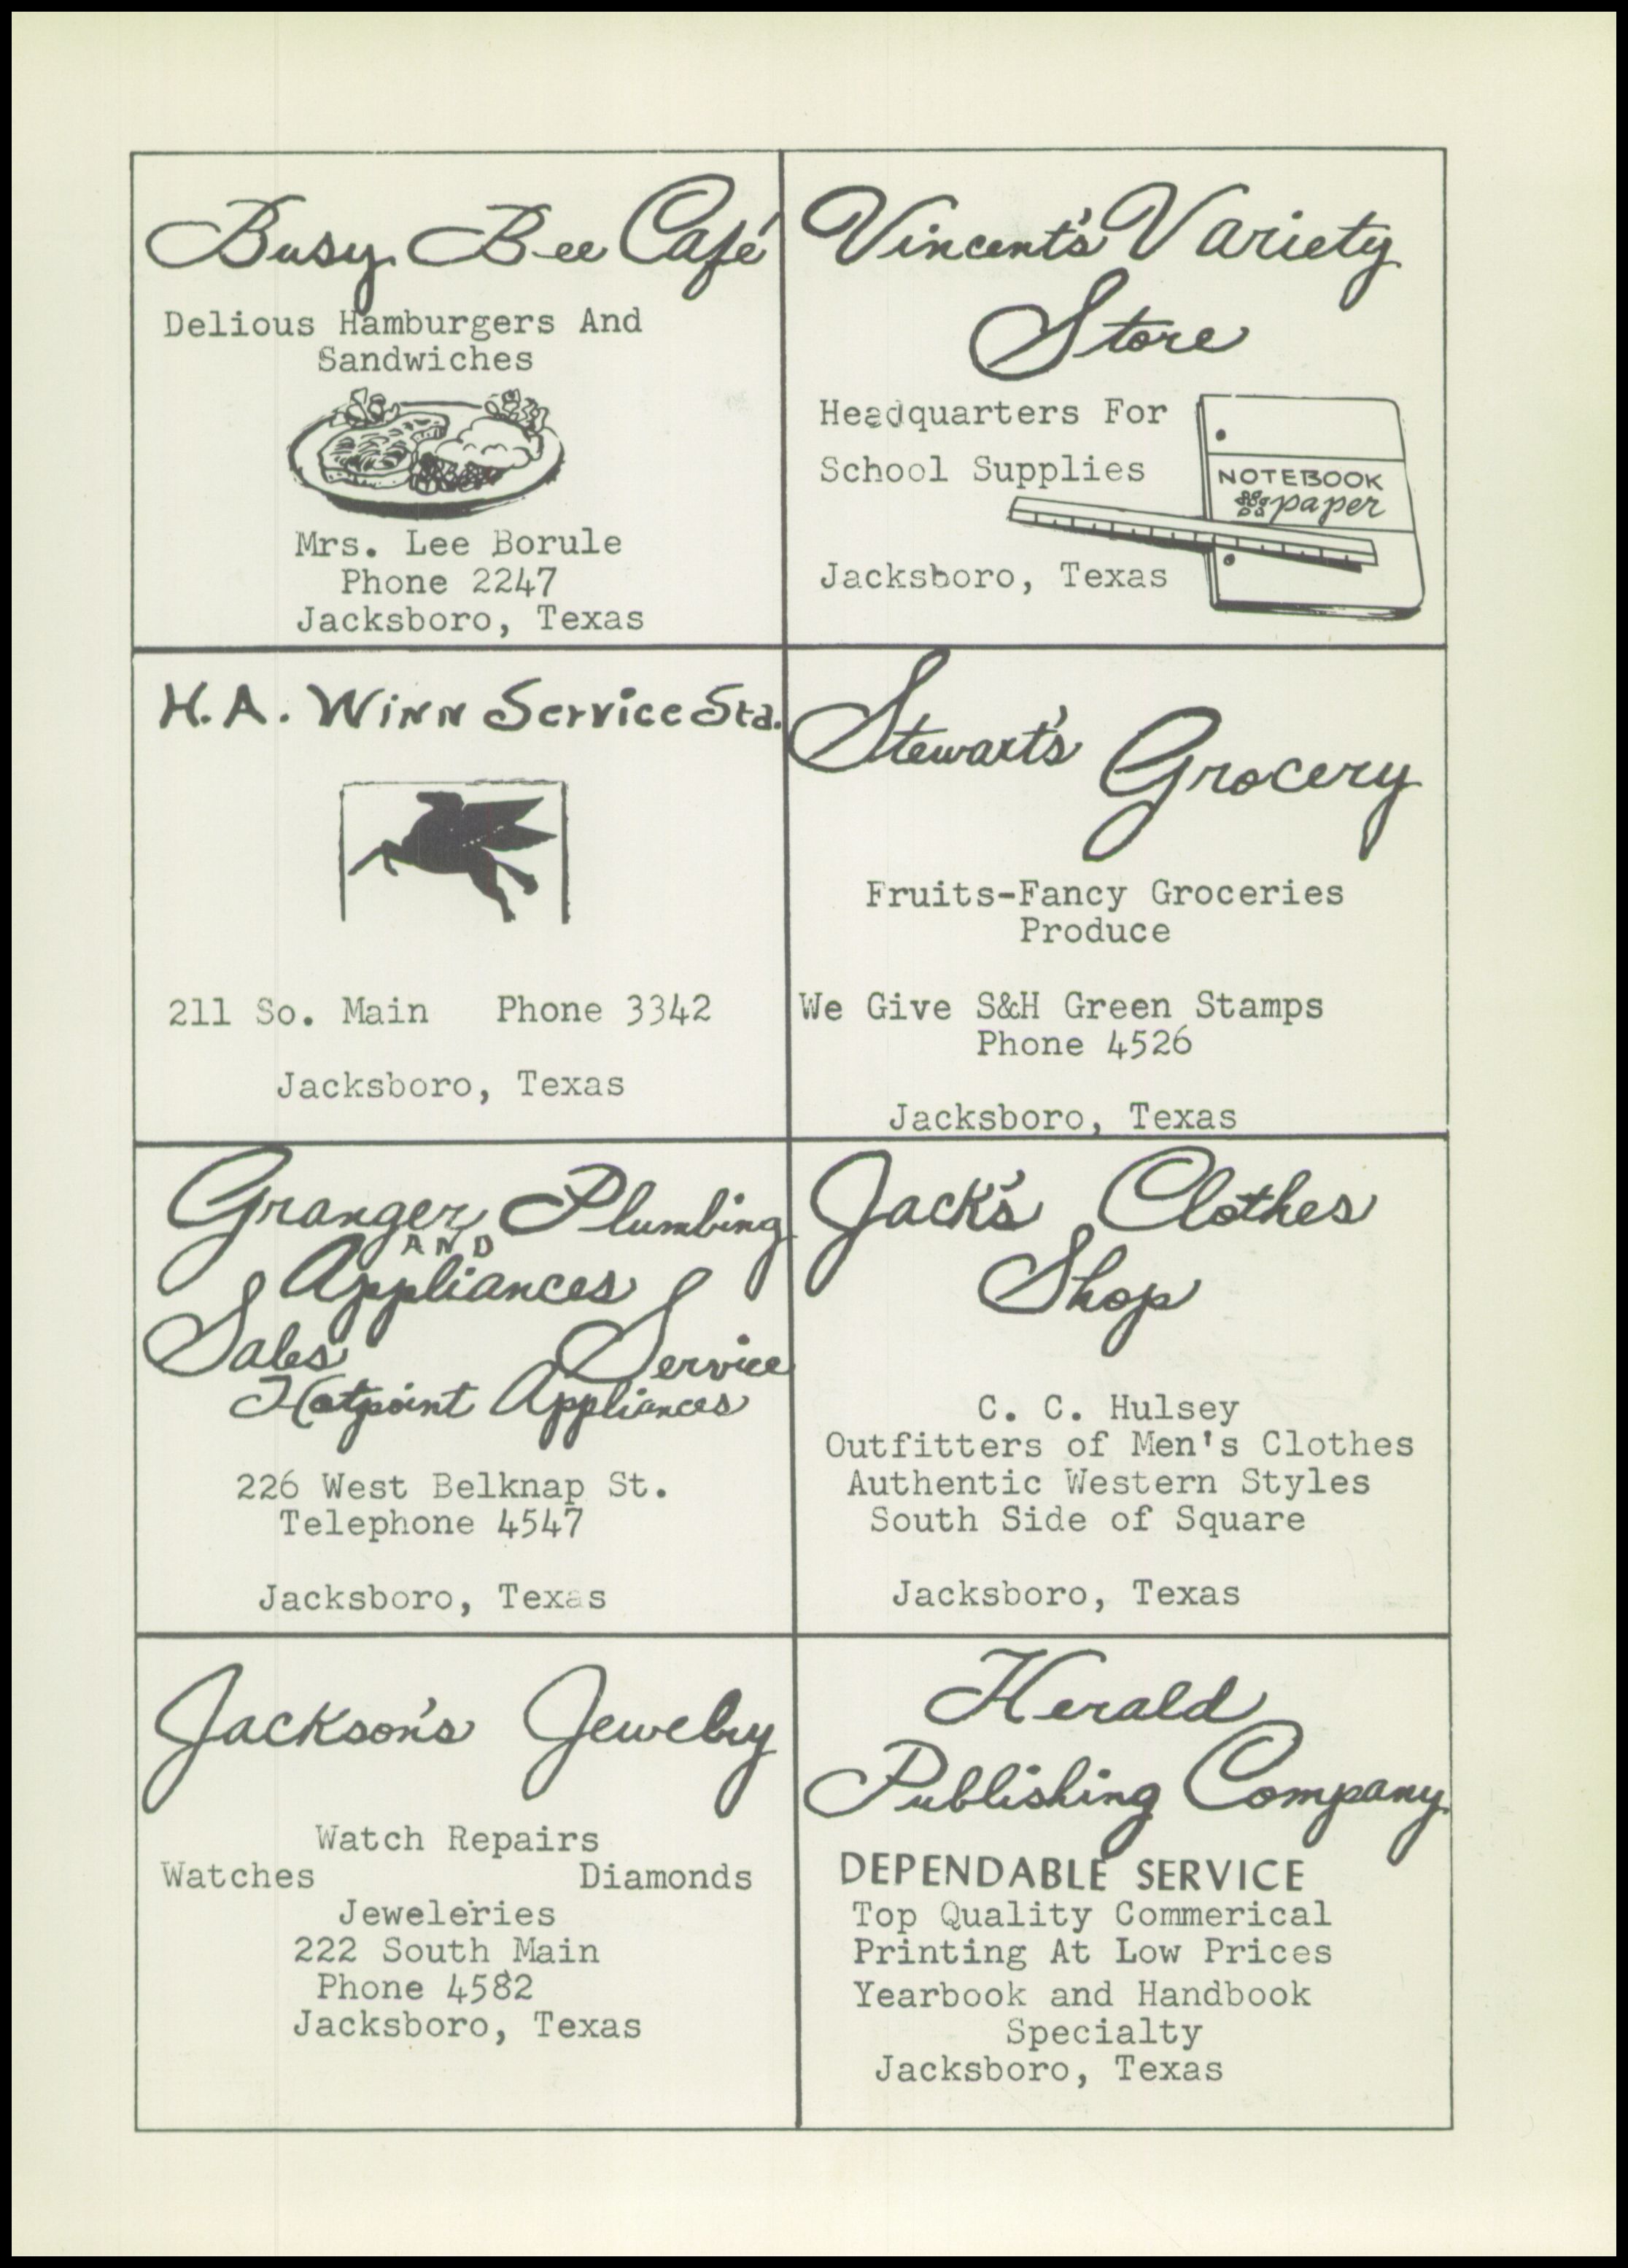 Busy Bee Café
Delious Hamburgers And
Sandwiches
Mrs. Lee Borule
Phone 2247
Jacksboro, Texas
Vincent's Variety
Store
Headquarters For
School Supplies
NOTEBOOK
paper
Jacksboro, Texas
H.A. Winn Service Sta.
211 So. Main Phone 3342
Jacksboro, Texas
Stewart's Grocery
Fruits-Fancy Groceries
Produce
We Give S&H Green Stamps
Phone 4526
Jacksboro, Texas
Granger Plumbing
AND
Appliances
Sales Service
Hotpoint Appliances
226 West Belknap St.
Telephone 4547
Jacksboro, Texas
Jack's Clothes
Shop
C. C. Hulsey
Outfitters of Men's Clothes
Authentic Western Styles
South Side of Square
Jacksboro, Texas
Jackson's Jewelry
Watch Repairs
Watches Diamonds
Jeweleries
222 South Main
Phone 4582
Jacksboro, Texas
Herald
Publishing Company
DEPENDABLE SERVICE
Top Quality Commerical
Printing At Low Prices
Yearbook and Handbook
Specialty
Jacksboro, Texas